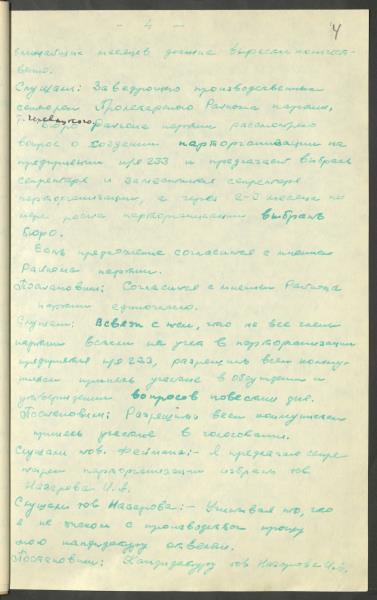 - 4 -
4
ближайших месяцев должно вырасти количест-
венно.
Слушали: Заведующего производственным
сектором Пролетарского Райкома партии,
т.
Бюро Райкома партии рассмотрело
вопрос о создании парторганизации на
предприятии п/я 233 и предлагает выбрать
секретаря и заместителя секретаря
парторганизации, а через 2-3 месяца по
мере роста парторганизации выбрать
Бюро.
Есть предложение согласиться с мнением
Райкома партии.
Постановили: Согласиться с мнением Райкома
партии единогласно.
Слушали: В связи с тем, что не все члены
партии встали на учет в парторганизации
предприятия п/я 233, разрешить всем комму-
нистам принять участие в обсуждении и
утверждении вопросов повестки дня.
Постановили: Разрешить всем коммунистам
принять участие в голосовании.
Слушали тов. :- Я предлагаю секре-
тарем парторганизации избрать тов
Назарова И.А.
Слушали тов Назарова:- Учитывая то, что
я не знаком с производством прошу
мою кандидатуру отвести.
Постановили: Кандидатуру тов Назарова И.А.